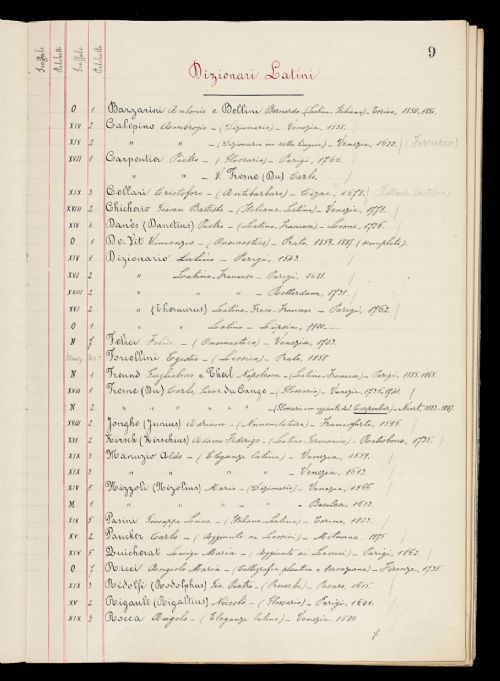 9
Scaffale Palchetto Scaffale Palchetto
Dizionari Latini
O 1 Bazzarini Antonio e Bellini Bernardo (Latino-Italiano) - Torino, 1850-1851.
XIV 2 Calepino Ambrogio - (Dizionario) - Venezia, 1551.
XIV 2 " " - (Dizionario in sette lingue) - Venezia, 1655. (Ferrarco)
XVII 1 Carpentier Pietro - (Glossario) - Parigi, 1766.
" " - V. Fresne (Du) Carlo.
XIX 3 Cellari Cristoforo - (Antibarbaro) - 1678.
XVIII 2 Chicherio Giovan Battista - (Italiano, Latino) - Venezia, 1779.
XIV 1 Danès (Danetius) Pietro - (Latino-Francese) - Leone, 1726.
O 1 De-Vit Vincenzio - (Onomastico) - Prato, 1859-1887 (completo).
XIV 1 Dizionario Latino - Parigi, 1543.
XVI 2 " Latino-Francese - Parigi, 1681.
XVIII 2 " " " - Rotterdam, 1731
XVI 2 " (Thesaurus) Latino-Greco-Francese - Parigi, 1762.
O 1 " " Latino - Lipsia, 1900 ....
N 7 Felici Felice - (Onomastico) - Venezia, 1703.
Forcellini Egidio - (Lessico) - Prato, 1858
N 1 Freund Guglielmo e Theil Napoleone - (Latino-Francese) - Parigi, 1855-1865.
XVII 1 Fresne (Du) Carlo, Sieur du Cange - (Glossario) - Venezia, 1736-1740.
N 2 " " " " " - (Glossario con aggiunte del Carpentier) - Niort, 1883-1887.
XVIII 2 Jonghe (Junius) Adriano - (Nomenclatura) - Francoforte, 1596.
XVI 2 Kirsch (Kirschius) Adamo Federigo - (Latino-Germanico) - Ratisbona, 1735.
XIX 3 Manuzio Aldo - (Eleganze latine) - Venezia, 1559.
XIX 3 " " " " - Venezia, 1613.
XIV 5 Nizzoli (Nizolius) Mario - (Dizionario) - Venezia, 1566
M 1 " " " " - Basilea, 1613
XIV 5 Pasini Giuseppe Luca - (Italiano Latino) - Torino, 1833.
XV 2 Paucker Carlo - (Aggiunte ai Lessici) - Mitanae, 1875.
XIV 5 Quicherat Luigi Maria - (Aggiunte ai Lessici) - Parigi, 1862.
O 7 Ricci Angelo Maria - (Calligrafia plautina e terenziana) - Firenze, 1735.
XIX 3 Ridolfi (Rodolphus) Gio. Pietro - (Proverbi) - Pesaro, 1615.
XV 2 Rigault (Rigaltius) Niccolò - (Glossario) - Parigi, 1601.
XIX 3 Rocca Angelo - (Eleganze latine) - Venezia, 1580.